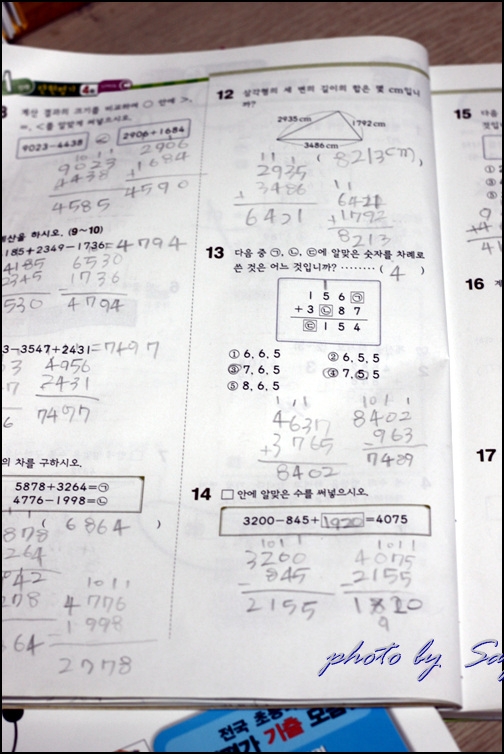 4-가
8
계산 결과의 크기를 비교하여 ○ 안에 >,
=, <를 알맞게 써넣으시오.
9023-4438 < 2906+1684
10 1 1
9023
4438
4585
2906
+1684
4590
계산을 하시오. (9~10)
185+2349-1736=4794
4185
2345
530
6530
-1736
4794
3-3547+2431=7497
4956
2431
7497
의 차를 구하시오.
5878+3264=㉠
4776-1998=㉡
( 6864 )
878
264
42
278
64
10 1 1
4776
1998
2778
12 삼각형의 세 변의 길이의 합은 몇 cm입니
까?
2935cm
1792cm
3486cm
( 8213cm )
1 1
2935
+3486
6421
1 1
6421
+1792
8213
13 다음 중 ㉠, ㉡, ㉢에 알맞은 숫자를 차례로
쓴 것은 어느 것입니까? ········ ( 4 )
1 5 6 ㉠
+ 3 ㉡ 8 7
㉢ 1 5 4
① 6, 6, 5 ② 6, 5, 5
③ 7, 6, 5 ④ 7, 5, 5
⑤ 8, 6, 5
1 1 1
4637
+3765
8402
10 1 1
8402
-963
14 □ 안에 알맞은 수를 써넣으시오.
3200-845+1920=4075
10 1 1
3200
-845
2155
10 1 1
4075
-2155
15 다음
16 계
17
photo by Sa
전국 초등
기출 모음